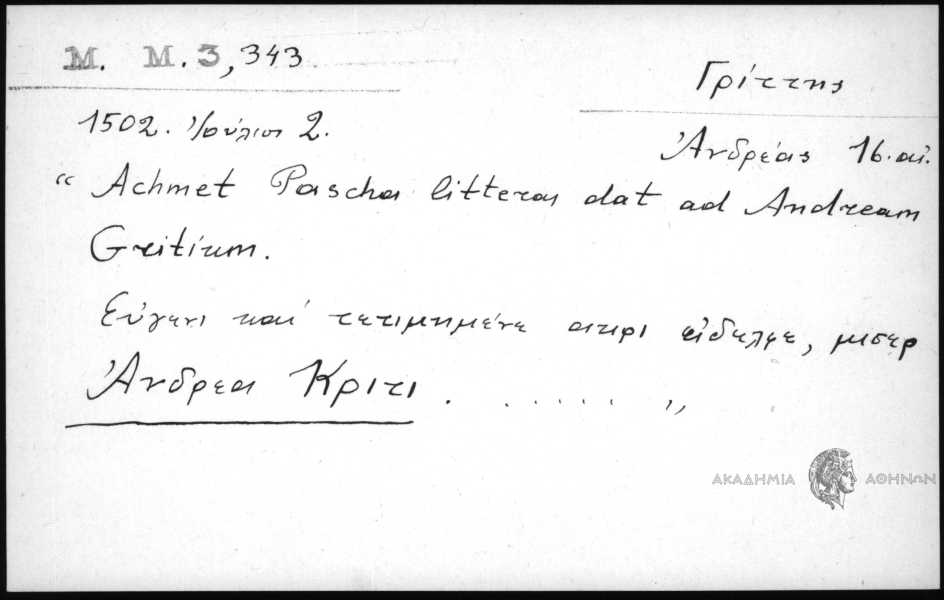 M. M.3,343
Γρίττης
1502. Ἰούλιος 2.
Ἀνδρέας 16. αἰ.
“ Achmet Pascha litteras dat ad Andream
Gritium.
Εὐγενι καί τετιμημένε ακρι ἀδελφε, μισερ
Ἀνδρεα Κριτι . . . . . . . ”
ΑΚΑΔΗΜΙΑ ΑΘΗΝΩΝ